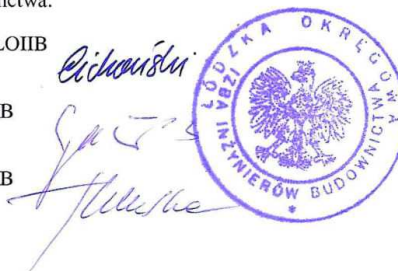 nictwa.
LOIIB
Cichoński
B
B
ŁÓDZKA OKRĘGOWA IZBA INŻYNIERÓW BUDOWNICTWA